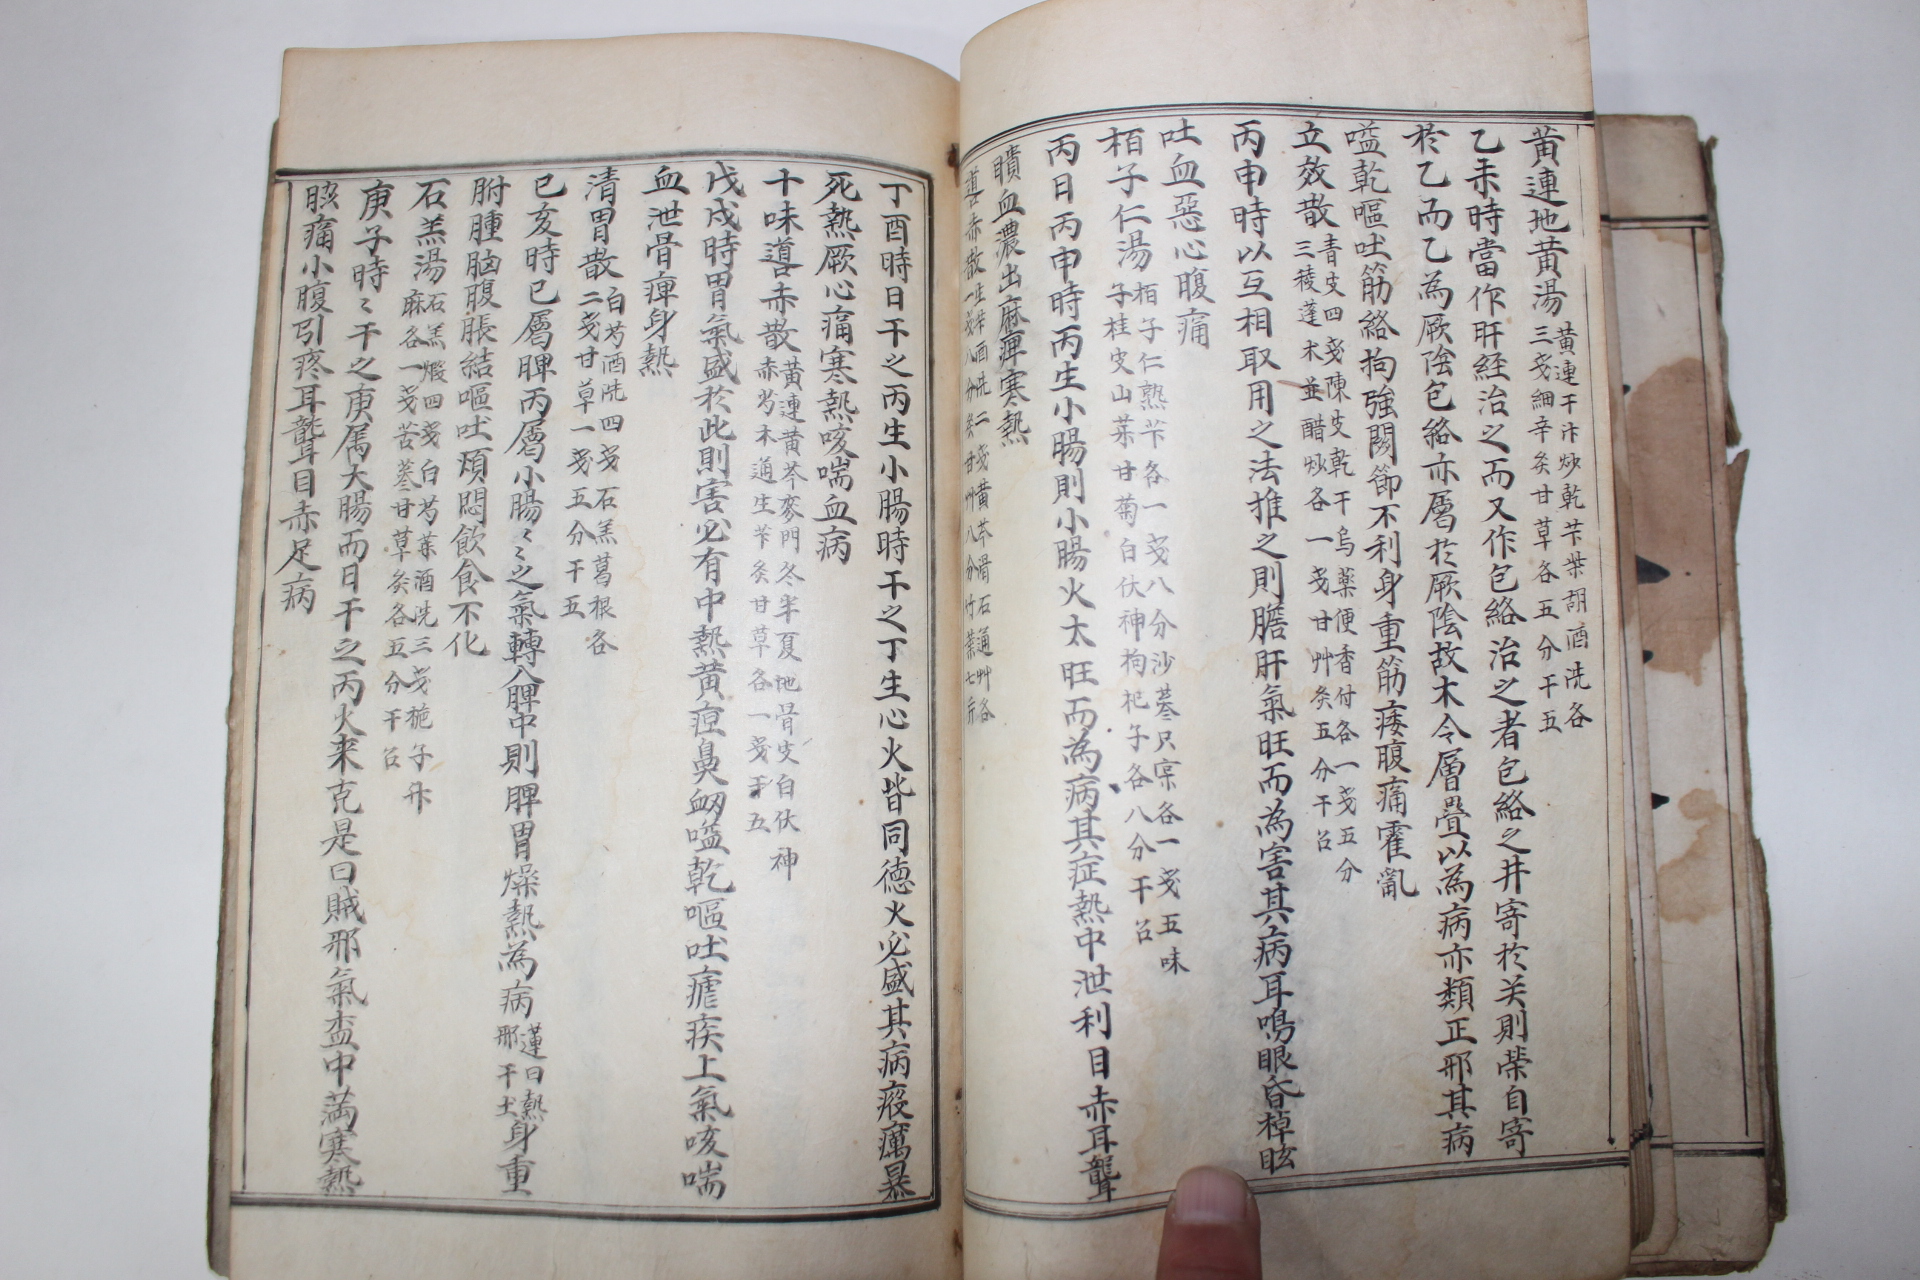 黄連地黄湯 黄連干汁炒乾芐柴胡酒洗各
三戔細辛炙甘草各五分干五
乙未時當作肝経治之而又作包絡治之者包絡之井寄於关則榮自寄
於乙而乙為厥陰包絡亦屬於厥陰故木令屬畳以為病亦類正邪其病
嗌乾嘔吐筋絡拘強関節不利身重筋痿腹痛霍亂
立效散 青皮四戔陳皮乾干乌薬便香付各一戔五分
三稜蓬木並醋炒各一戔甘艸炙五分干召
丙申時以互相取用之法推之則膽肝氣旺而為害其病耳鳴眼昏悼眩
吐血惡心腹痛
栢子仁湯 栢子仁熟芐各一戔八分沙蔘只宲各一戔五味
子桂皮山茱甘菊白伏神拘杞子各八分干召
丙日丙申時丙生小腸則小腸火太旺而為病其症熱中泄利目赤耳聾
瞶血濃出麻痺寒熱
導赤散 生芐酒洗二戔黄芩滑石通艸各
一戔八分炙甘艸八分竹葉七斤
丁酉時日干之丙生小腸時干之丁生心火皆同徳火必盛其病瘕癘暴
死熱厥心痛寒熱咳喘血病
十味導赤散 黄連黄芩麥門冬半夏地骨皮白伏神
赤芍木通生芐炙甘草各一戔干五
戊戌時胃氣盛於此則害必有中熱黄疸鼻衂嗌乾嘔吐瘧疾上氣咳喘
血泄骨痺身熱
清胃散 白芍酒洗四戔石羔葛根各
二戔甘草一戔五分干五
已亥時已屬脾丙屬小腸〻之氣轉入脾中則脾胃燥熱為病 運曰熱
邪干土 身重
胕腫脑腹脹結嘔吐煩悶飲食不化
石羔湯 石羔煅四戔白芍葉酒洗三戔梔子升
麻各一戔苦蔘甘草炙各五分干召
庚子時〻干之庚属大腸而日干之丙火来克是曰賊邪氣盃中満寒熱
胲痛小腹引疼耳聾目赤足病